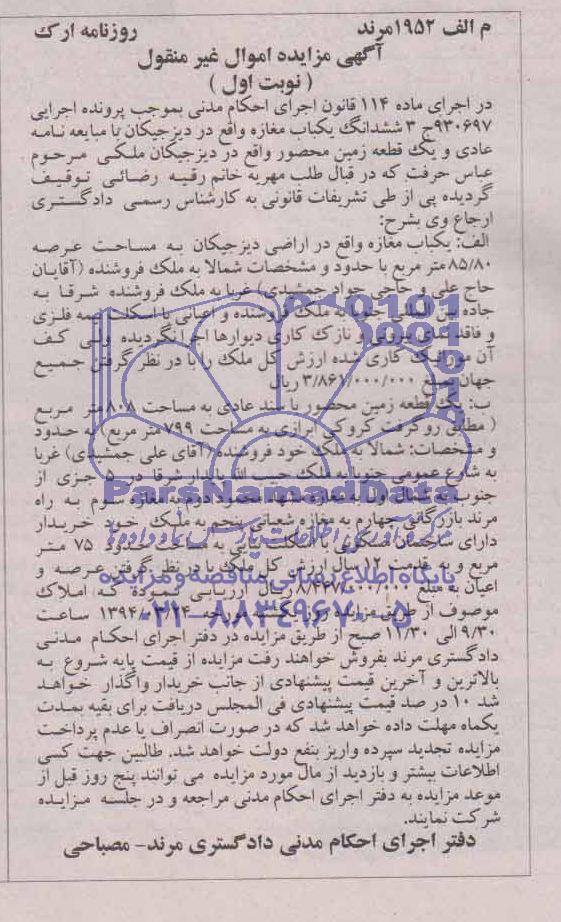 م الف ۱۹۵۲مرند روزنامه ارک
آگهی مزایده اموال غیر منقول
( نوبت اول )
در اجرای ماده ۱۱۴ قانون اجرای احکام مدنی بموجب پرونده اجرایی
۹۳۰۶۹۷ج ۳ ششدانگ یکباب مغازه واقع در دیزجیکان با مبایعه نامه
عادی و یک قطعه زمین محصور واقع در دیزجیکان ملکی مرحوم
عباس حرفت که در قبال طلب مهریه خانم رقیه رضائی توقیف
گردیده پی از طی تشریفات قانونی به کارشناس رسمی دادگستری
ارجاع وی بشرح:
الف: یکباب مغازه واقع در اراضی دیزجیکان به مساحت عرصه
۸۵/۸۰ متر مربع با حدود و مشخصات شمالا به ملک فروشنده (آقایان
حاج علی و حاجی جواد جمشیدی) غربا به ملک فروشنده شرقا به
جاده بین المللی جنوبا به ملک فروشنده و اعیانی با اسکلت نیمه فلزی
و فاقد نمای بیرونی و نازک کاری دیوارها اجرا نگردیده ولی کف
آن موزائیک کاری شده ارزش کل ملک را با در نظر گرفتن جمیع
جهات مبلغ ۳/۸۶۱/۰۰۰/۰۰۰ ریال
ب: یک قطعه زمین محصور با سند عادی به مساحت ۸۰۸ متر مربع
( مطابق رو گرفت کروکی ابرازی به مساحت ۷۹۹ متر مربع) به حدود
و مشخصات: شمالا به ملک خود فروشنده (آقای علی جمشیدی) غربا
به شارع عمومی جنوبا به ملک حبیب الله پایدار شرقا در ۵ جزی از
جنوب به شمال اول به مغازه مشهد محمود دوم به مغازه سوم به راه
مرند بازرگان چهارم به مغازه شعبانی پنجم به ملک خود خریدار
دارای ساختمان مسکونی با اسکلت بنایی به مساحت حدود ۷۵ متر
مربع و به قدمت ۱۲ سال ارزش کل ملک با در نظر گرفتن عرصه و
اعیان به مبلغ ریال ارزیابی نموده که املاک
موصوف از طریق مزایده روز ساعت
۹/۳۰ الی ۱۱/۳۰ صبح از طریق مزایده در دفتر اجرای احکام مدنی
دادگستری مرند بفروش خواهند رفت مزایده از قیمت پایه شروع به
بالاترین و آخرین قیمت پیشنهادی از جانب خریدار واگذار خواهد
شد ۱۰ در صد قیمت پیشنهادی فی المجلس دریافت برای بقیه بمدت
یکماه مهلت داده خواهد شد که در صورت انصراف یا عدم پرداخت
مزایده تجدید سپرده واریز بنفع دولت خواهد شد. طالبین جهت کسی
اطلاعات بیشتر و بازدید از مال مورد مزایده می توانند پنج روز قبل از
موعد مزایده به دفتر اجرای احکام مدنی مراجعه و در جلسه مزایده
شرکت نمایند.
دفتر اجرای احکام مدنی دادگستری مرند- مصباحی
ParsNamadData
پایگاه اطلاع رسانی مناقصه و مزایده
۰۲۱-۸۸۳۴۹۶۷۰-۵